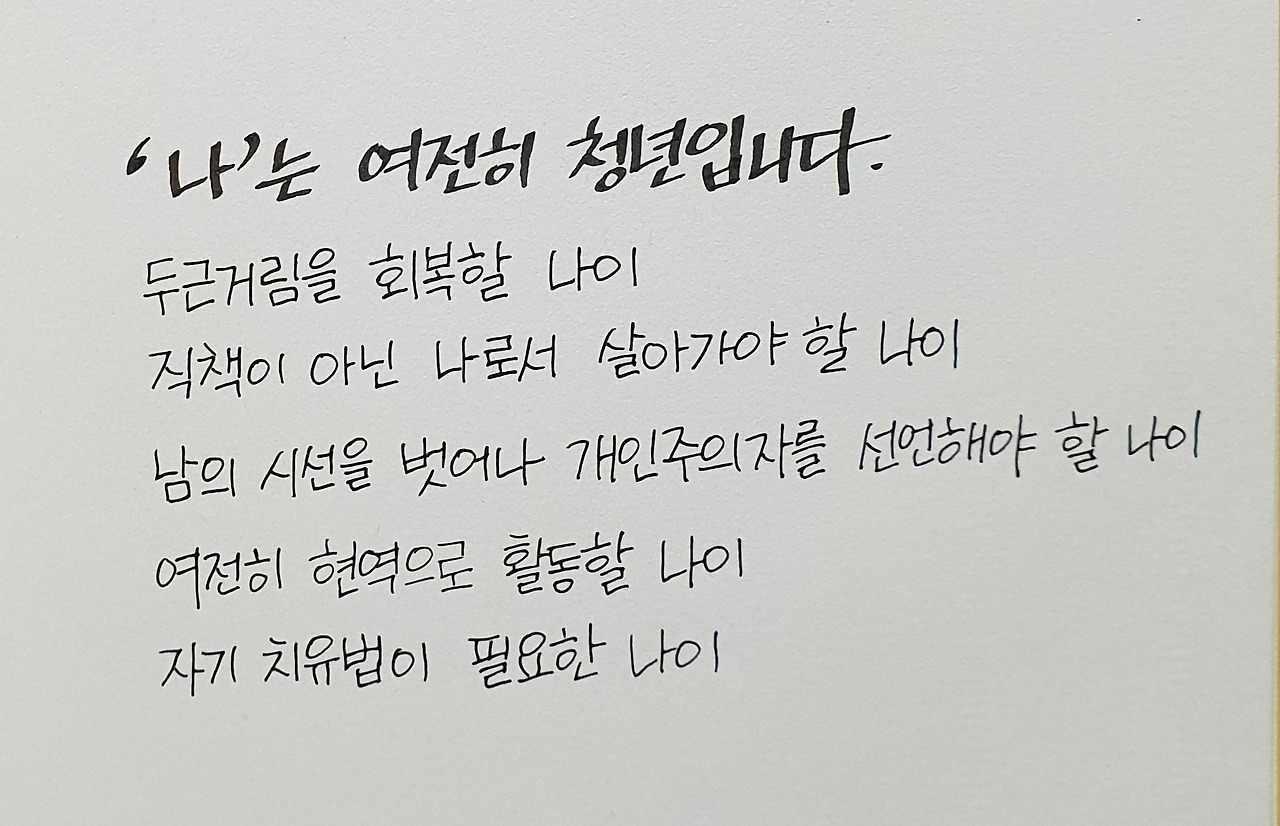 ‘나’는 여전히 청년입니다.
두근거림을 회복할 나이
직책이 아닌 나로서 살아가야 할 나이
남의 시선을 벗어나 개인주의자를 선언해야 할 나이
여전히 현역으로 활동할 나이
자기 치유법이 필요한 나이